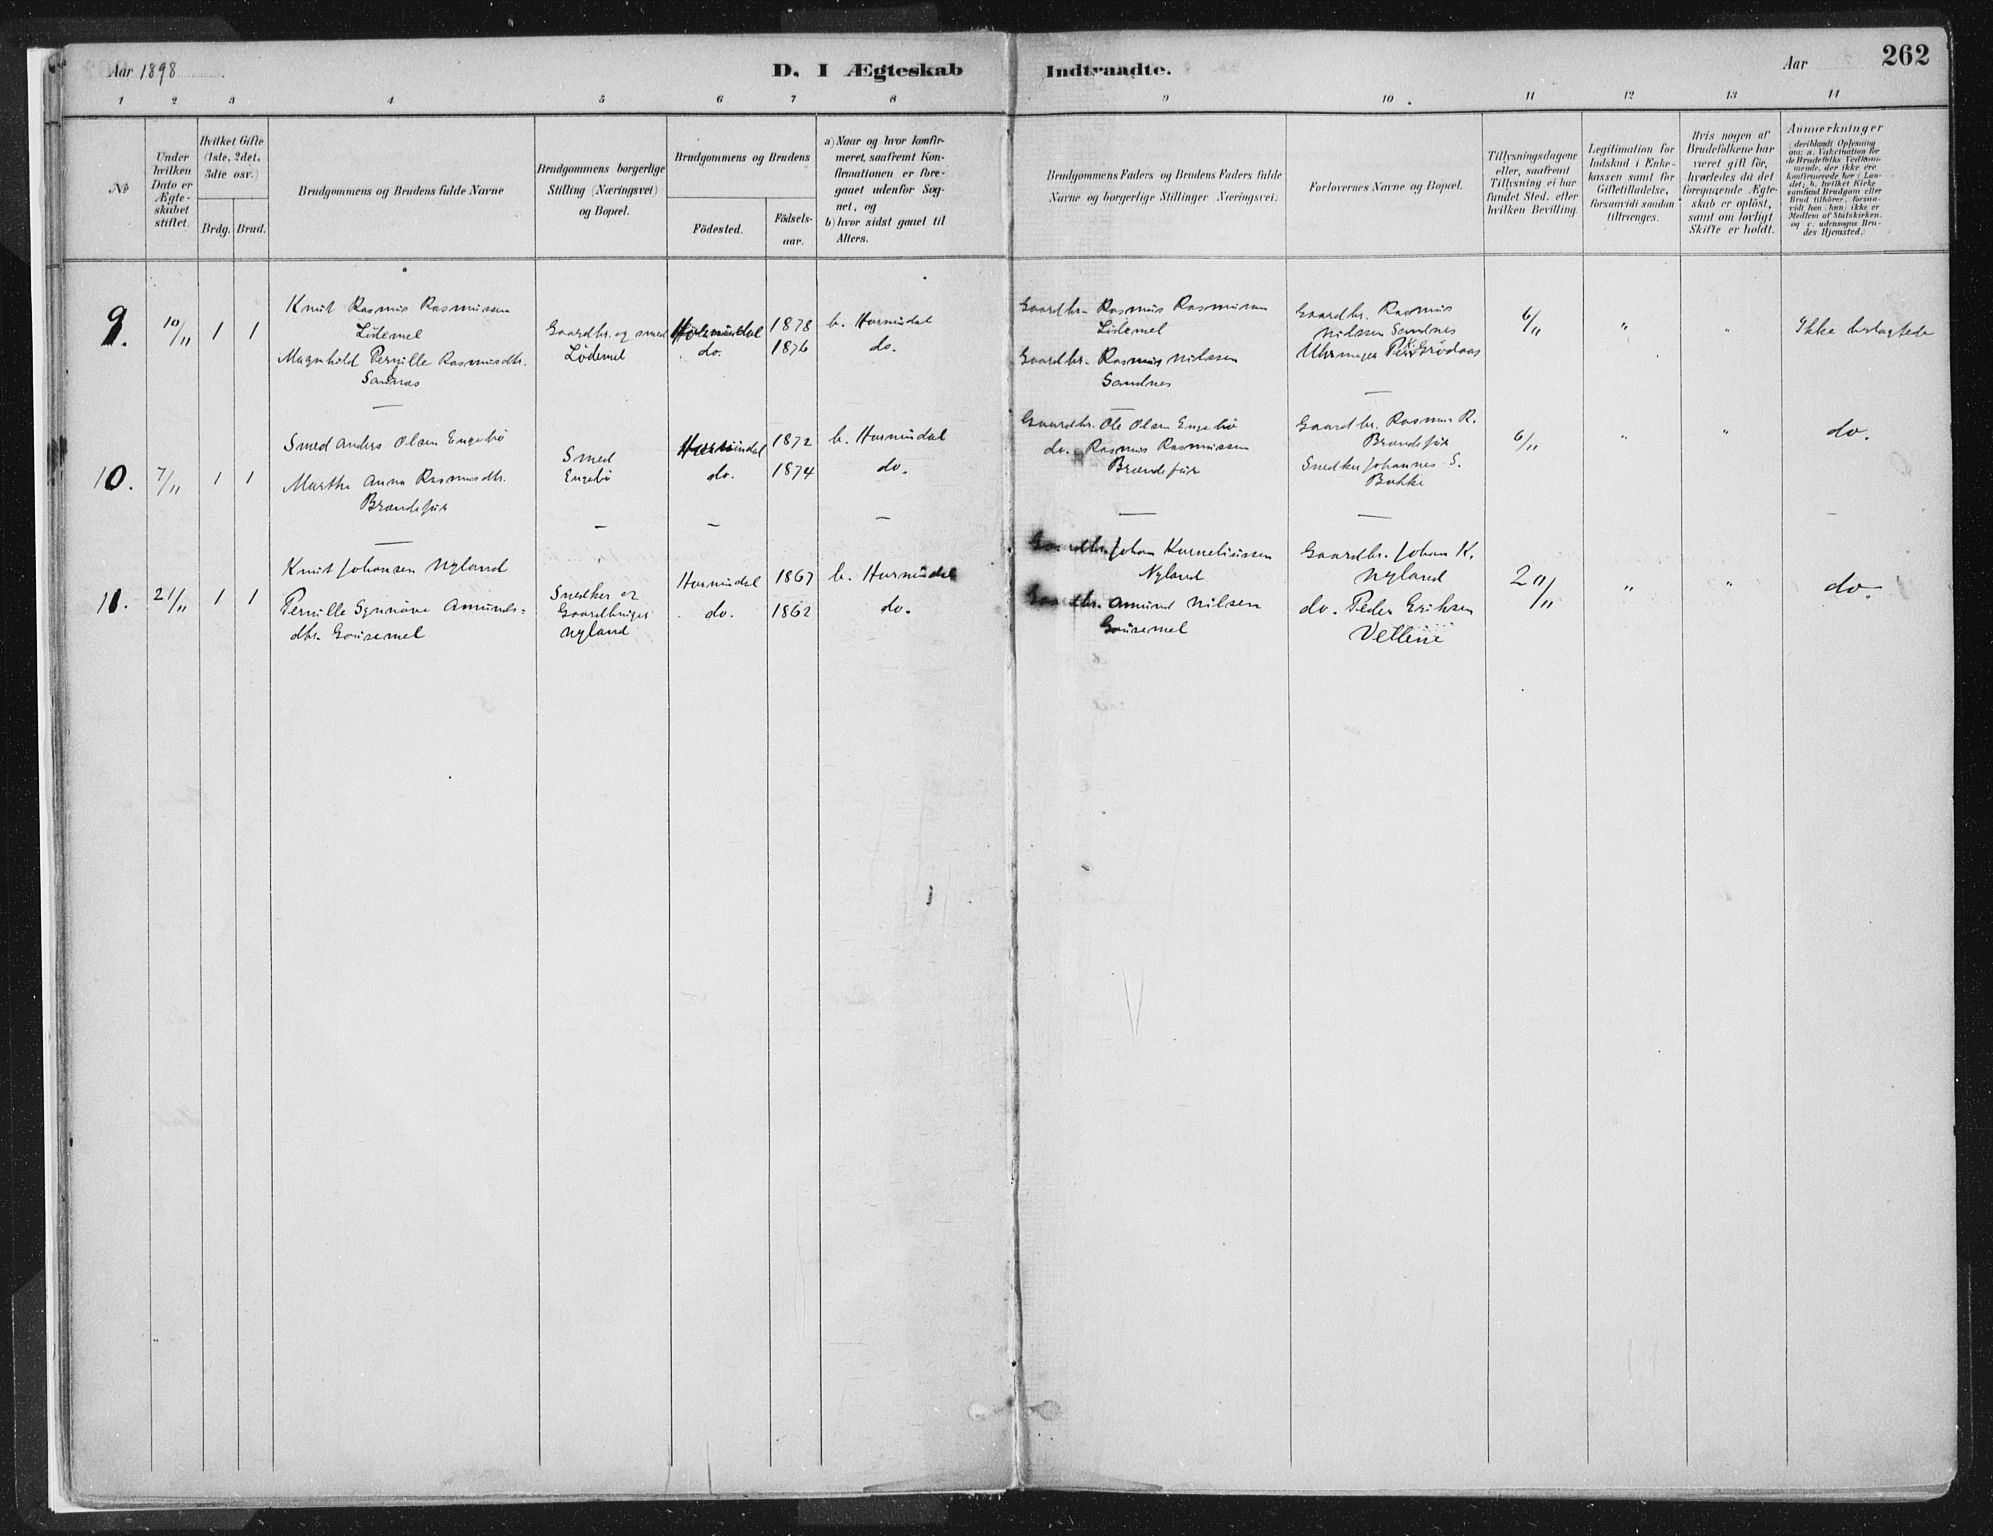 Aar 1898
D. I Ægteskab Indtraadte.
Aar
262
1 2 3 4 5 6 7 8 9 10 11 12 13 14
No
Under hvilken Dato er Ægteskabet stiftet.
Hvilket Gifte (1ste, 2det, 3die osv.)
Brdg. Brud.
Brudgommens og Brudens fulde Navne
Brudgommens borgerlige Stilling (Næringsvei) og Bopæl.
Brudgommens og Brudens
Födested.
Födsels-aar.
a) Naar og hvor konfirmeret, saafremt Konfirmationen er foregaaet udenfor Sognet, og
b) hvor sidst gaaet til Alters.
Brudgommens Faders og Brudens Faders fulde Navne og borgerlige Stillinger (Næringsvei)
Forlovernes Navne og Bopæl.
Tillysningsdagene eller, saafremt Tillysning ei har fundet Sted, efter hvilken Bevilling.
Legitimation for Indskud i Enkekassen samt for Giftetilladelse, forsaavidt saadan tiltrænges.
Hvis nogen af Brudefolkene har været gift för, hvorledes da det foregaaende Ægteskab er oplöst, samt om lovligt Skifte er holdt.
Anmærkninger
(deriblandt Oplysning om: a. Vakcination for de Brudefolks Vedkommende, der ikke ere konfirmerede her i Landet; b. hvilket Kirkesamfund Brudgom eller Brud tilhörer, forsaavidt han (hun) ikke er Medlem af Statskirken, og c. udensogns Brudes Hjemsted.)
9. 10/11 1 1
Knut Rasmus Rasmussen
Lödemel
Magnhild Pernille Rasmusdtr.
Sandnes
Gaardbr. og smed
Lödemel
Hornindal 1878 b. Hornindal
do. 1876 do.
Gaardbr. Rasmus Rasmussen
Lödemel
Gaardbr. Rasmus Nilssen
Sandnes
Gaardbr. Rasmus
Nilssen Sandnes
Uhrmager Per K. Grodaas
6/11 " " Ikke beslægtede
10. 7/11 1 1
Smed Anders Olsen Engebö
Marthe Anna Rasmusdtr.
Brændefur
Smed
Engebö
Hornindal 1872 b. Hornindal
do. 1874 do.
Gaardbr. Ole Olsen Engebö
do. Rasmus Rasmussen
Brændefur
Gaardbr. Rasmus R.
Brændefur
Snedker Johannes S.
Bakke
6/11 " " do.
11. 21/11 1 1
Knut Johansen Nyland
Pernille Synnöve Amunds-
dtr. Gausemel
Snedker og
Gaardbruger
Nyland
Hornindal 1867 b. Hornindal
do. 1862 do.
Gaardbr. Johan Korneliussen
Nyland
Gaardbr. Amund Nilsen
Gausemel
Gaardbr. Johan K.
Nyland
do. Peder Eriksen
Vetline
20/11 " " do.